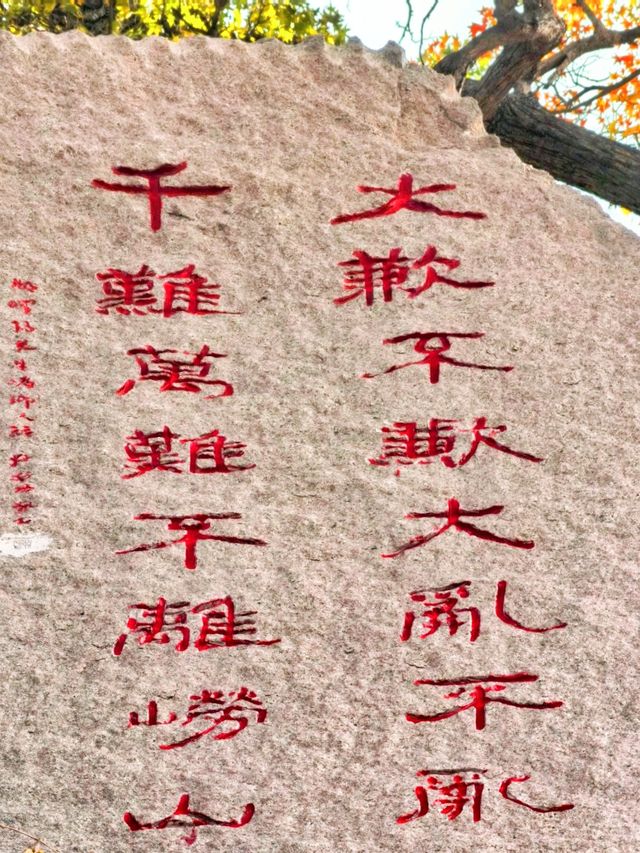 大歉不歉大亂不亂
千難萬難不離嶗山